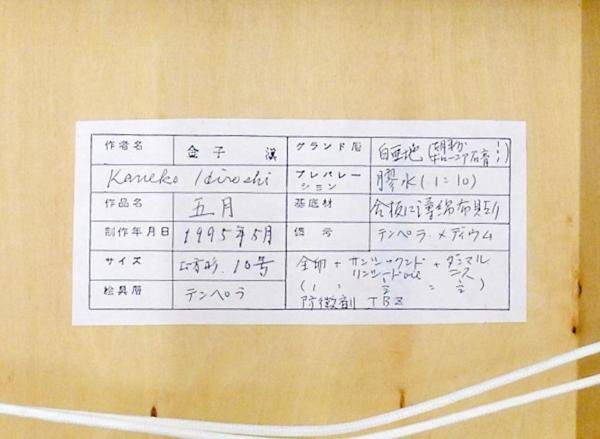 作者名 金子 滉
Kaneko Hiroshi
作品名 五月
制作年月日 1995年5月
サイズ 正方形.10号
絵具層 テンペラ
グランド層 白亜地(
プレパレーション 膠水(1:10)
基底材 合板に薄綿布貼り
備考 テンペラ・メディウム
全卵 + サンシックンド リンシードoil + ダンマル ニス
(1 : 1/2 : 1/2)
防黴剤 TBZ